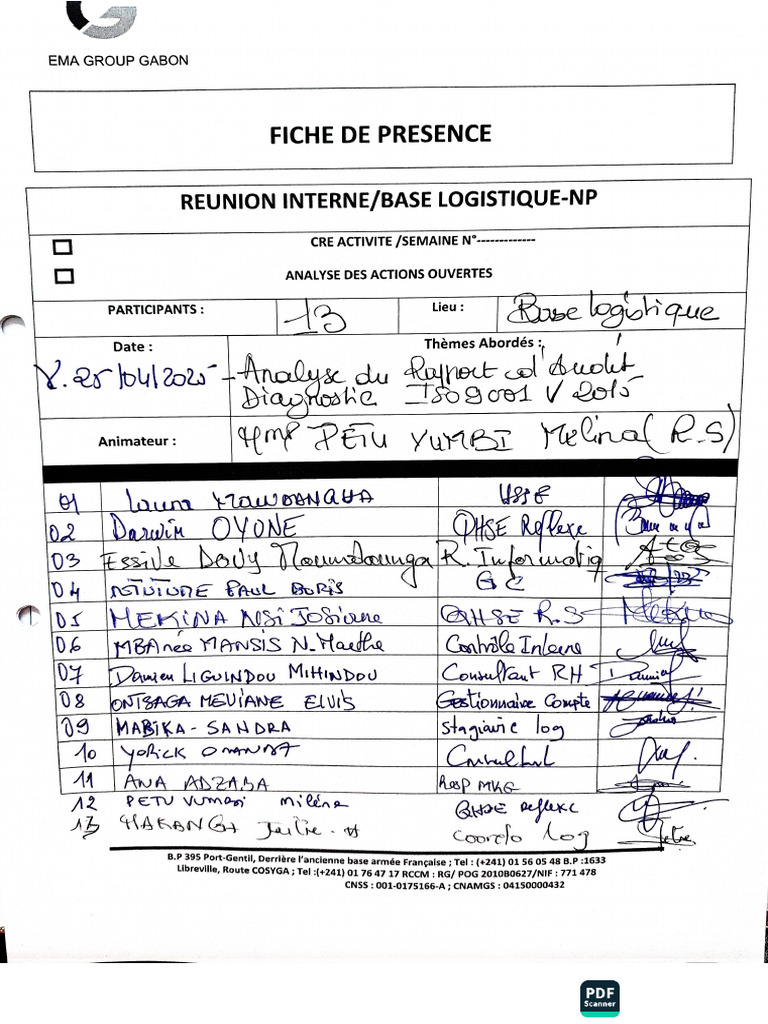 EMA GROUP GABON
FICHE DE PRESENCE
REUNION INTERNE/BASE LOGISTIQUE-NP
CRE ACTIVITE /SEMAINE N°-------------
ANALYSE DES ACTIONS OUVERTES
PARTICIPANTS : 13 Lieu : Base logistique
Date : Thèmes Abordés :
V. 25/04/2025 - Analyse du Rapport d'Audit
Diagnostic ISO 9001 V 2015
Animateur : PETU YUMBI Mélina (R.S)
01 Laura HSSE
02 Darwin OYONE QHSE Reflexe
03 ESSIVE DOVY R. Informatiq
04 PAUL BORIS
05 MEKINA NSI Josiane QHSE R.S
06 MBAnée MANSIS N. Marthe Contrôle Interne
07 Damien LIGUINDOU MIHINDOU Consultant RH
08 ONTSAGA MEVIANE ELVIS Gestionnaire Compte
09 MABIKA - SANDRA stagiaire log
10 Yorick Consultant
11 ANA ADZABA Resp MKG
12 PETU YUMBI Milène QHSE Reflexe
13 MAKANGA coordo log
B.P 395 Port-Gentil, Derrière l'ancienne base armée Française ; Tel : (+241) 01 56 05 48 B.P :1633
Libreville, Route COSYGA ; Tel :(+241) 01 76 47 17 RCCM : RG/ POG 2010B0627/NIF : 771 478
CNSS : 001-0175166-A ; CNAMGS : 04150000432
PDF
Scanner